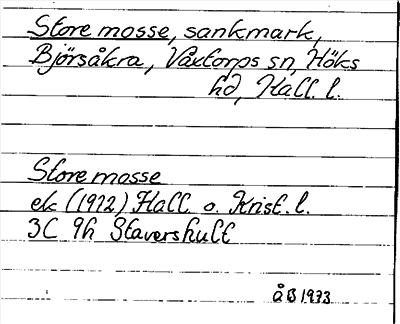 Store mosse, sankmark,
Björsåkra, Våxtorps sn, Höks
hd, Hall. l.
Store mosse
ek (1912) Hall. o. Krist. l.
3C 9h Stavershult
åB 1933